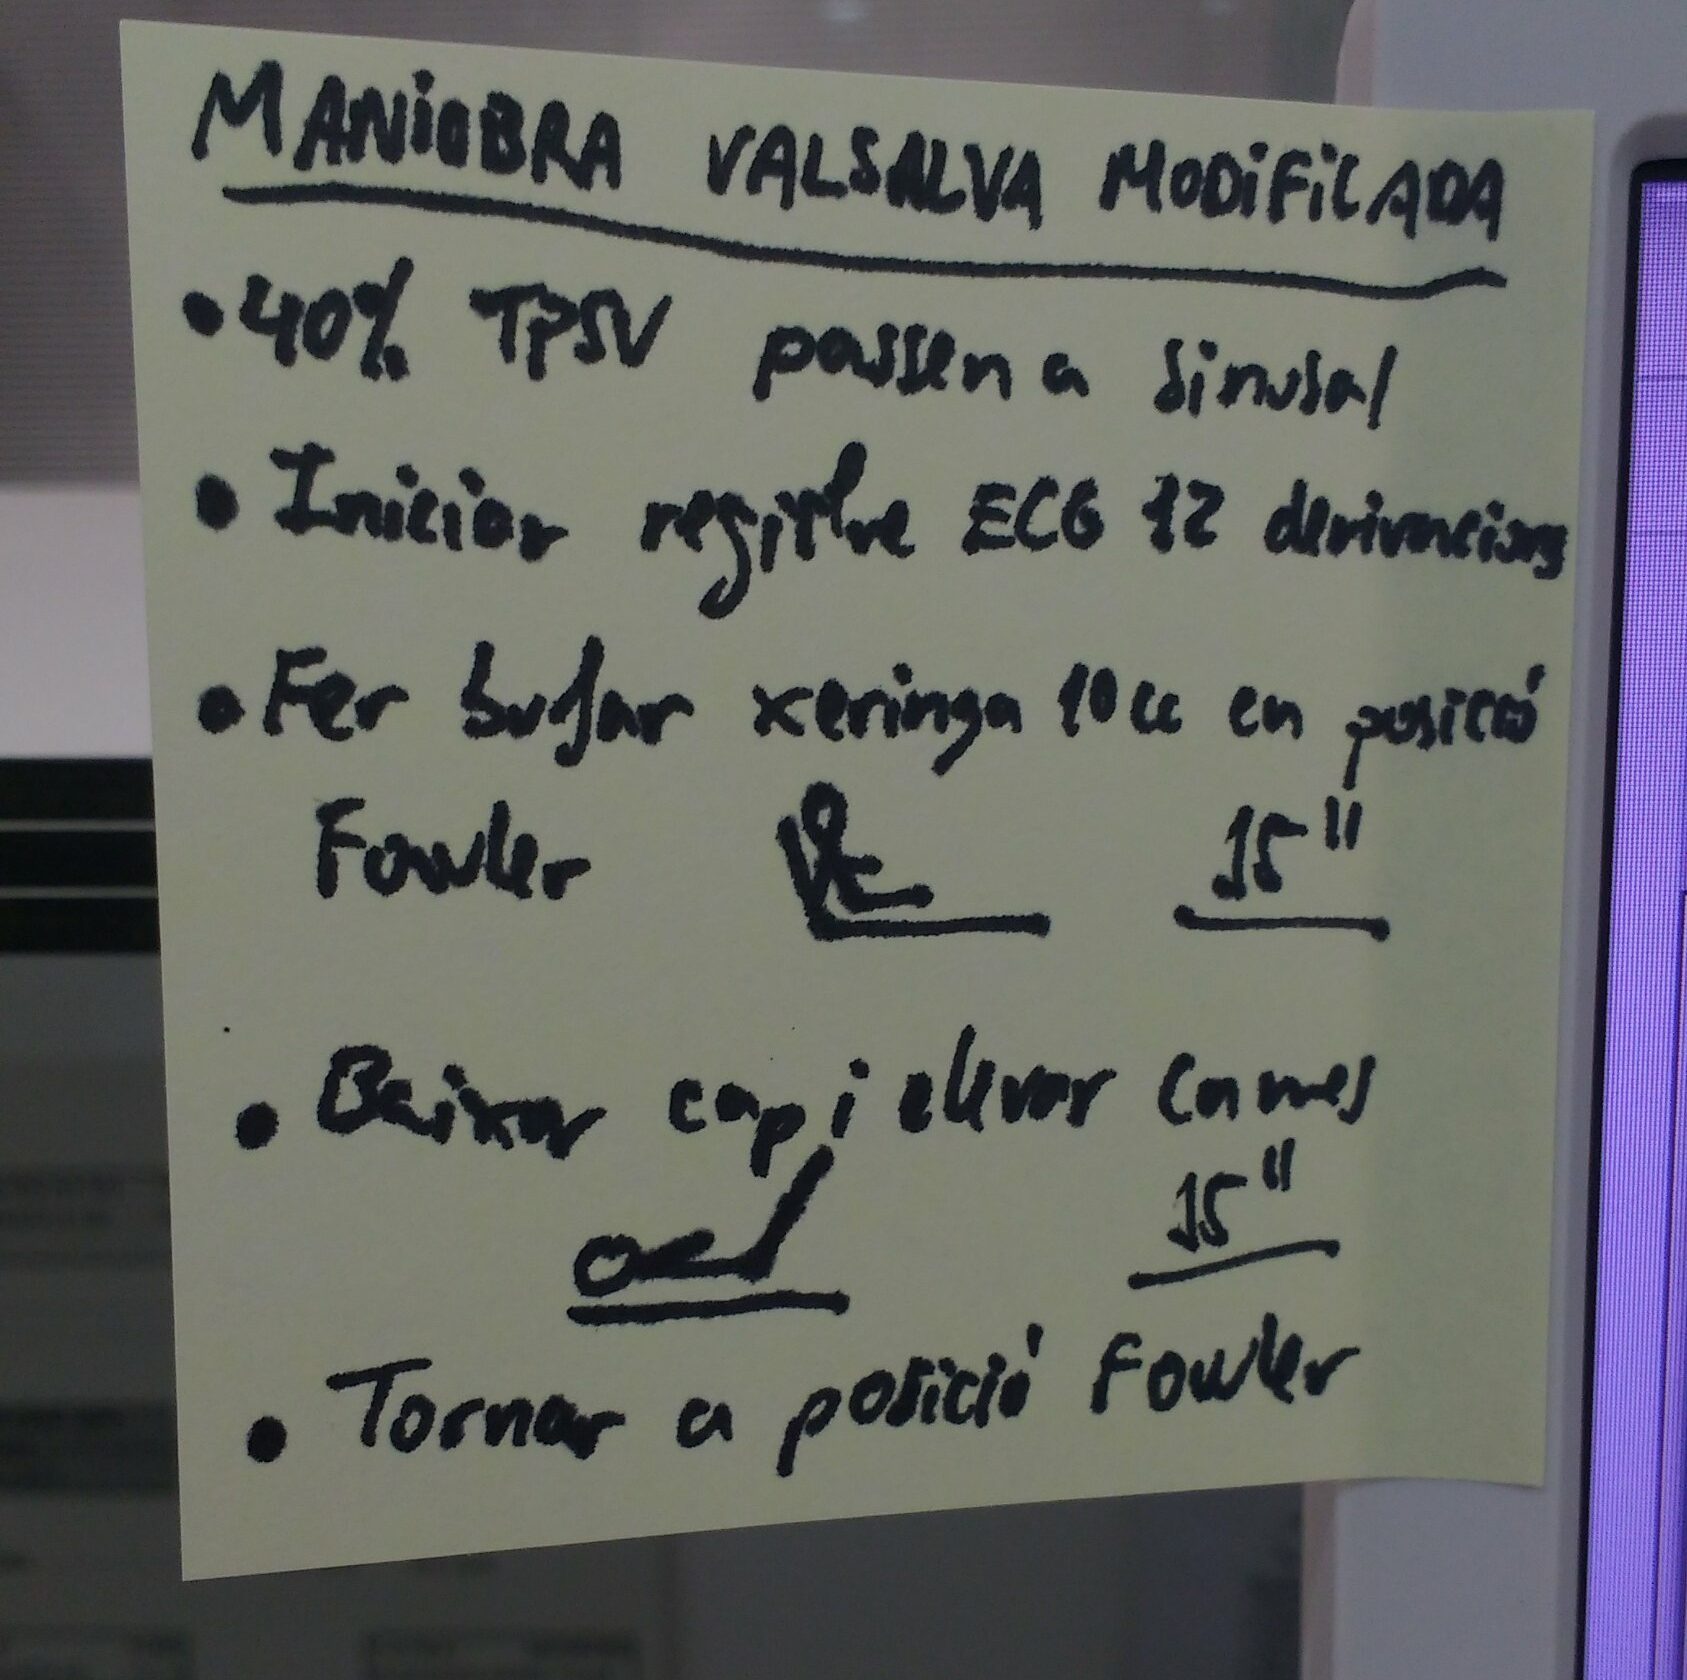 MANiOBRA VALSALVA MODiFiCADA
• 40% TPSV passen a sinusal
• Iniciar registre ECG 12 derivacions
• Fer bufar xeringa 10cc en posició
Fowler 15"
• Baixar cap i elevar cames
15"
• Tornar a posició Fowler